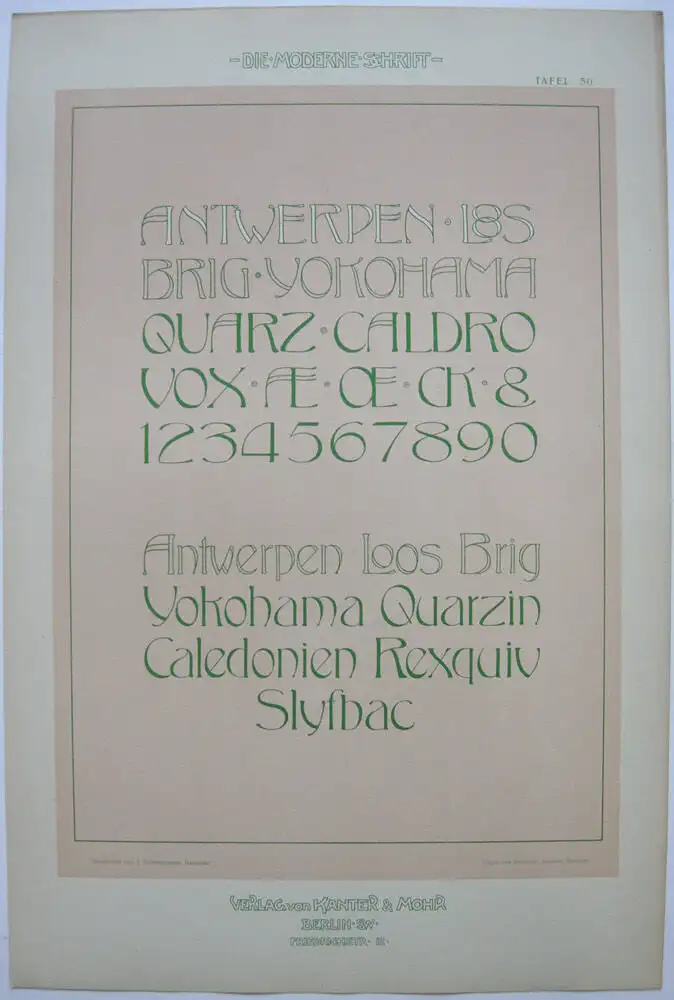 -DIE·MODERNE·SCHRIFT-
TAFEL 50
ANTWERPEN · LOOS
BRIG · YOKOHAMA
QUARZ · CALDRO
VOX · Æ · Œ · CK · &
1234567890
Antwerpen Loos Brig
Yokohama Quarzin
Caledonien Rexquiv
Slyfbac
VERLAG·von KANTER & MOHR
BERLIN·SW·
FRIEDRICHSTR·12·